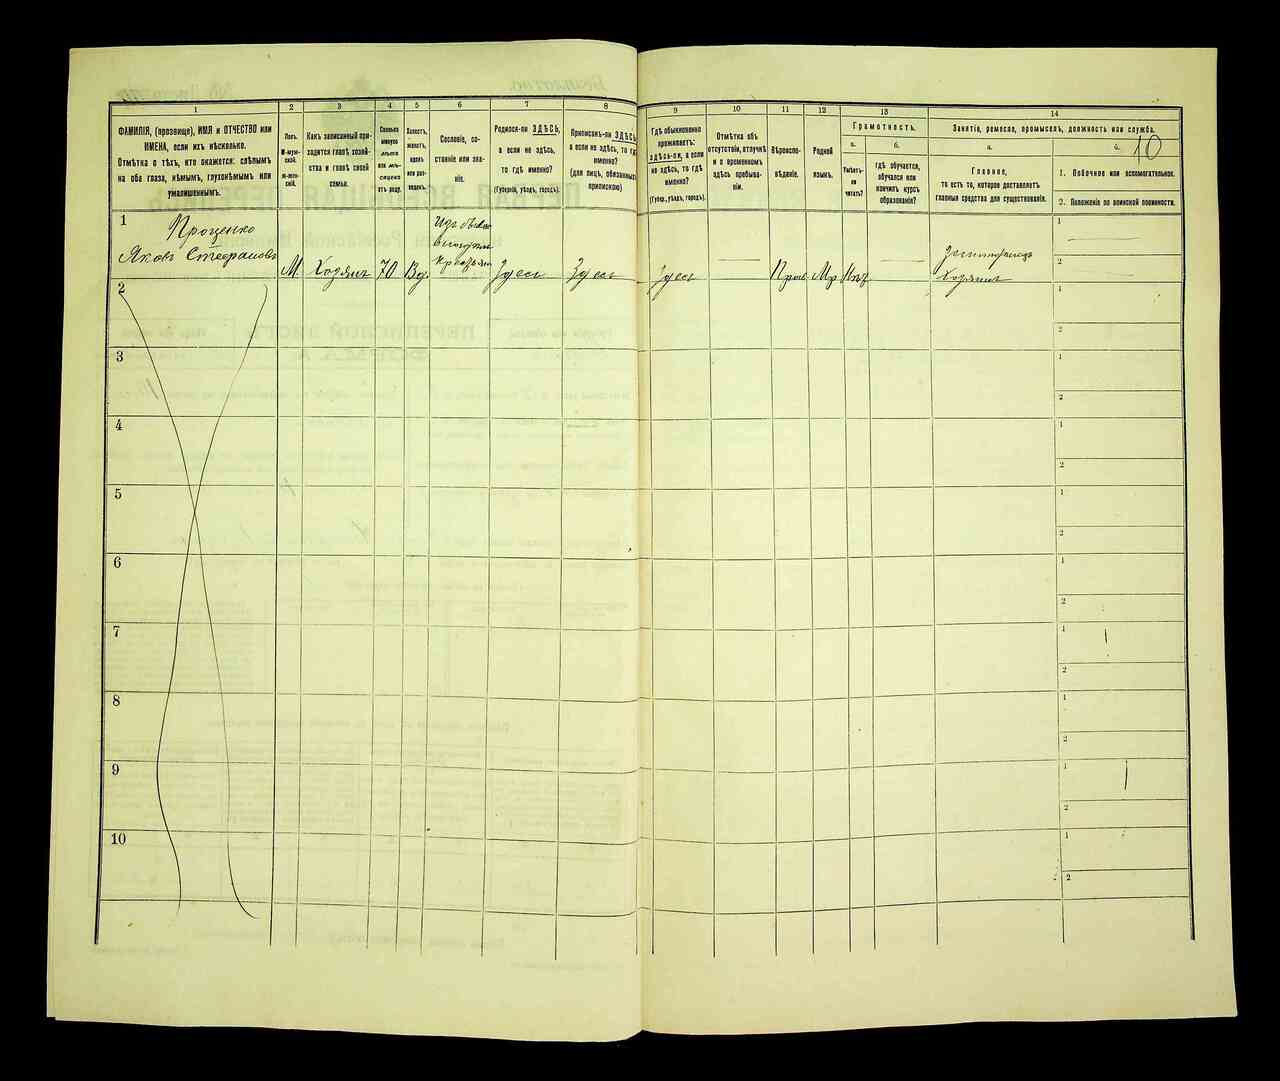 1
2
3
4
5
6
7
8
ФАМИЛІЯ, (прозвище), ИМЯ и ОТЧЕСТВО или
ИМЕНА, если ихъ нѣсколько.
Отмѣтка о тѣхъ, кто окажется: слѣпымъ
на оба глаза, нѣмымъ, глухонѣмымъ или
умалишеннымъ.
Полъ.
М-муж-
ской.
Ж-жен-
скій.
Какъ записанный при-
ходится главѣ хозяй-
ства и главѣ своей
семьи.
Сколько
минуло
лѣтъ
или мѣ-
сяцевъ
отъ роду.
Холостъ,
женатъ,
вдовъ
или раз-
веденъ.
Сословіе, со-
стояніе или зва-
ніе.
Родился-ли ЗДѢСЬ,
а если не здѣсь,
то гдѣ именно?
(Губернія, уѣздъ, городъ).
Приписанъ-ли ЗДѢСЬ,
а если не здѣсь, то гдѣ
именно?
(для лицъ, обязанныхъ
припискою)
1
Проценко
Яковъ Стефановъ
М.
Хозяинъ
70
Вд.
Здесь
Здесь
2
3
4
5
6
7
8
9
10
9
10
11
12
13
14
Гдѣ обыкновенно
проживаетъ:
здѣсь-ли, а если
не здѣсь, то гдѣ
именно?
(Губер., уѣздъ, городъ).
Отмѣтка объ
отсутствіи, отлучкѣ
и о временномъ
здѣсь пребыва-
ніи.
Вѣроиспо-
вѣданіе.
Родной
языкъ.
Грамотность.
а.
Умѣетъ-
ли
читать?
б.
гдѣ обучается,
обучался или
кончилъ курсъ
образованія?
Занятіе, ремесло, промыселъ, должность или служба.
а.
Главное,
то есть то, которое доставляетъ
главныя средства для существованія.
б.
10
1. Побочное или вспомогательное.
2. Положеніе по воинской повинности.
Здесь
Прав
Мр
Нѣт
Хозяинъ
1
2
1
2
1
2
1
2
1
2
1
2
1
2
1
2
1
2
1
2